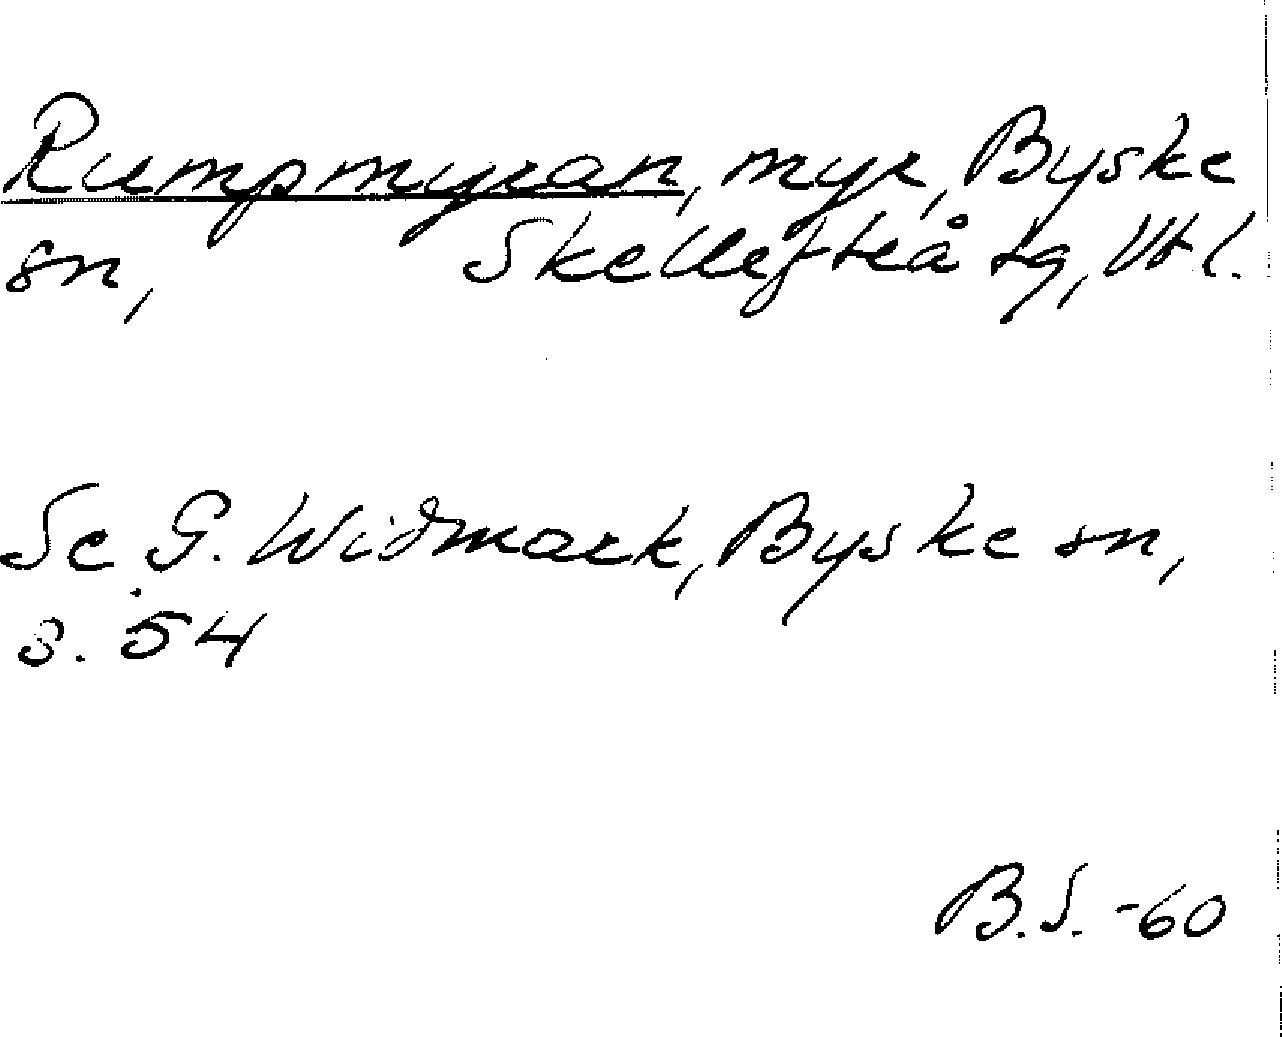 Rumpmyran, myr, Byske
sn, Skellefteå tg, Vtl.
Se G. Widmark, Byske sn,
s. 54
B.S. -60